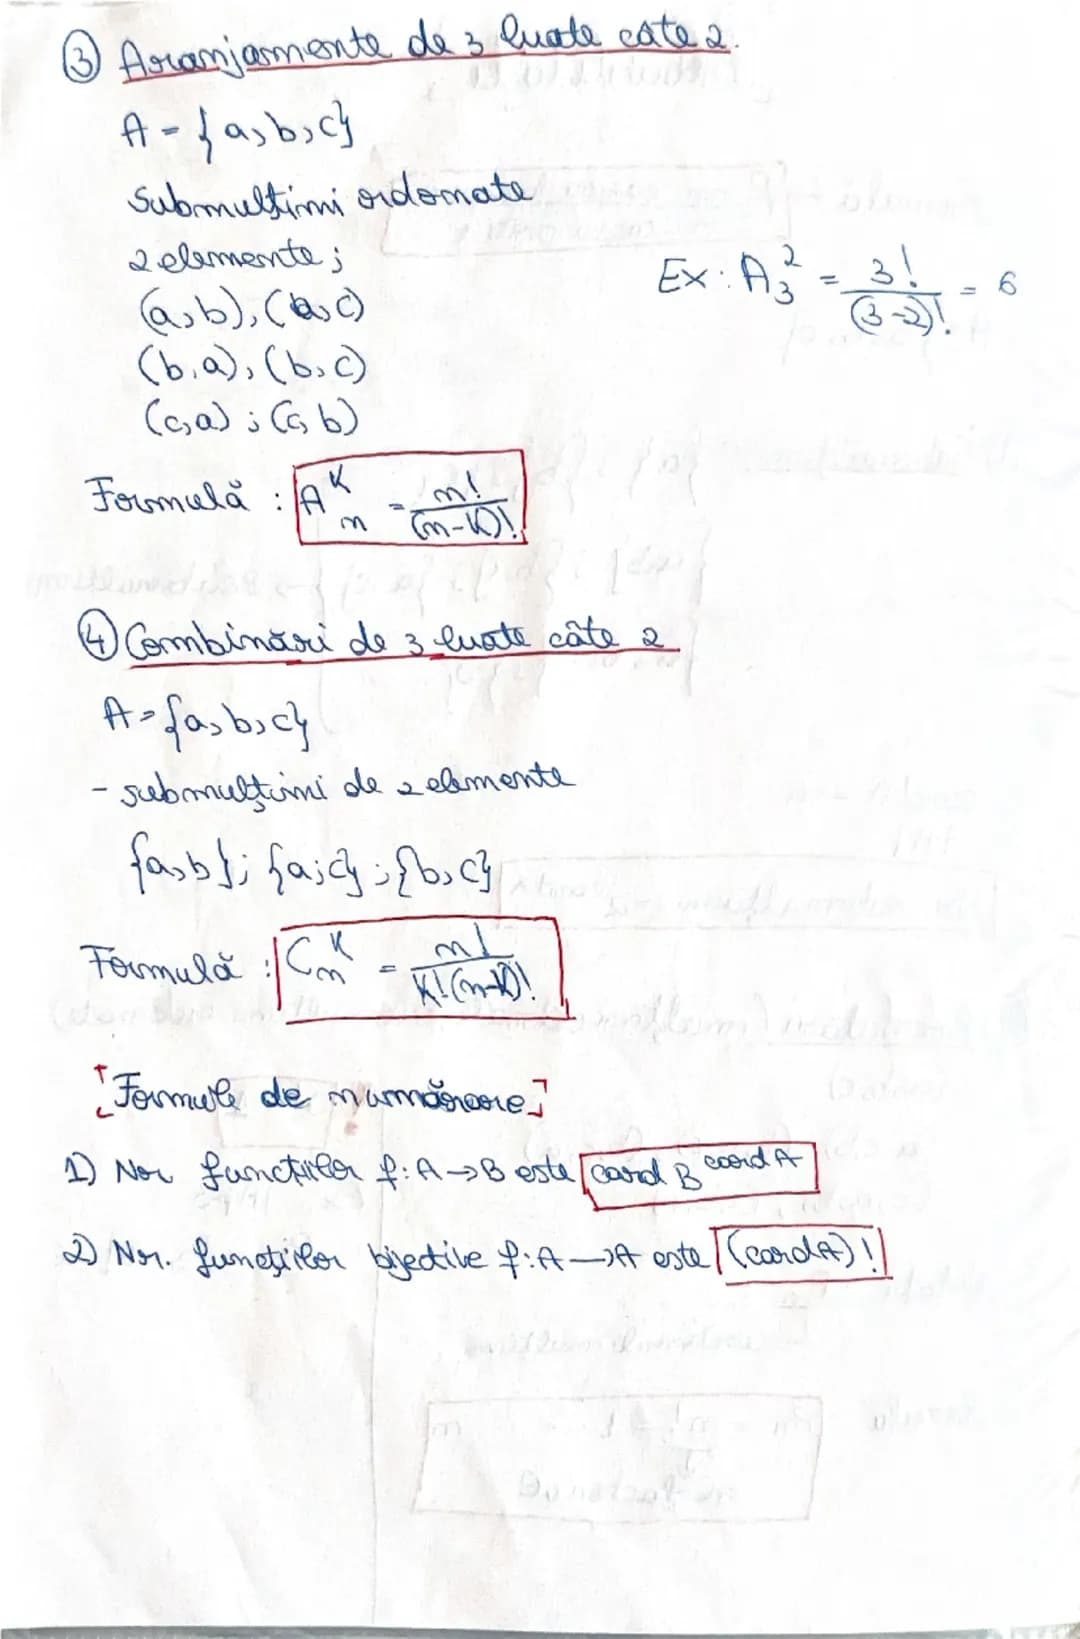 ③ Aranjamente de 3 luate câte 2.
A = {a, b, c}
Submulțimi ordonate
2 elemente;
(a, b), (a, c)
Ex: A₃² = 3! / (3-2)! = 6
(b, a), (b, c)
(c, a) ; (c, b)
Formulă : Aₙᴷ = n! / (n-K)!
④ Combinări de 3 luate câte 2
A = {a, b, c}
- submulțimi de 2 elemente
{a, b}; {a; c} ; {b, c}
Formulă : Cₙᴷ = n! / K!(n-K)!
[Formule de numărare]
1) Nr funcțiilor f: A → B este card B^card A
2) Nr. funcțiilor bijective f: A → A este (card A)!